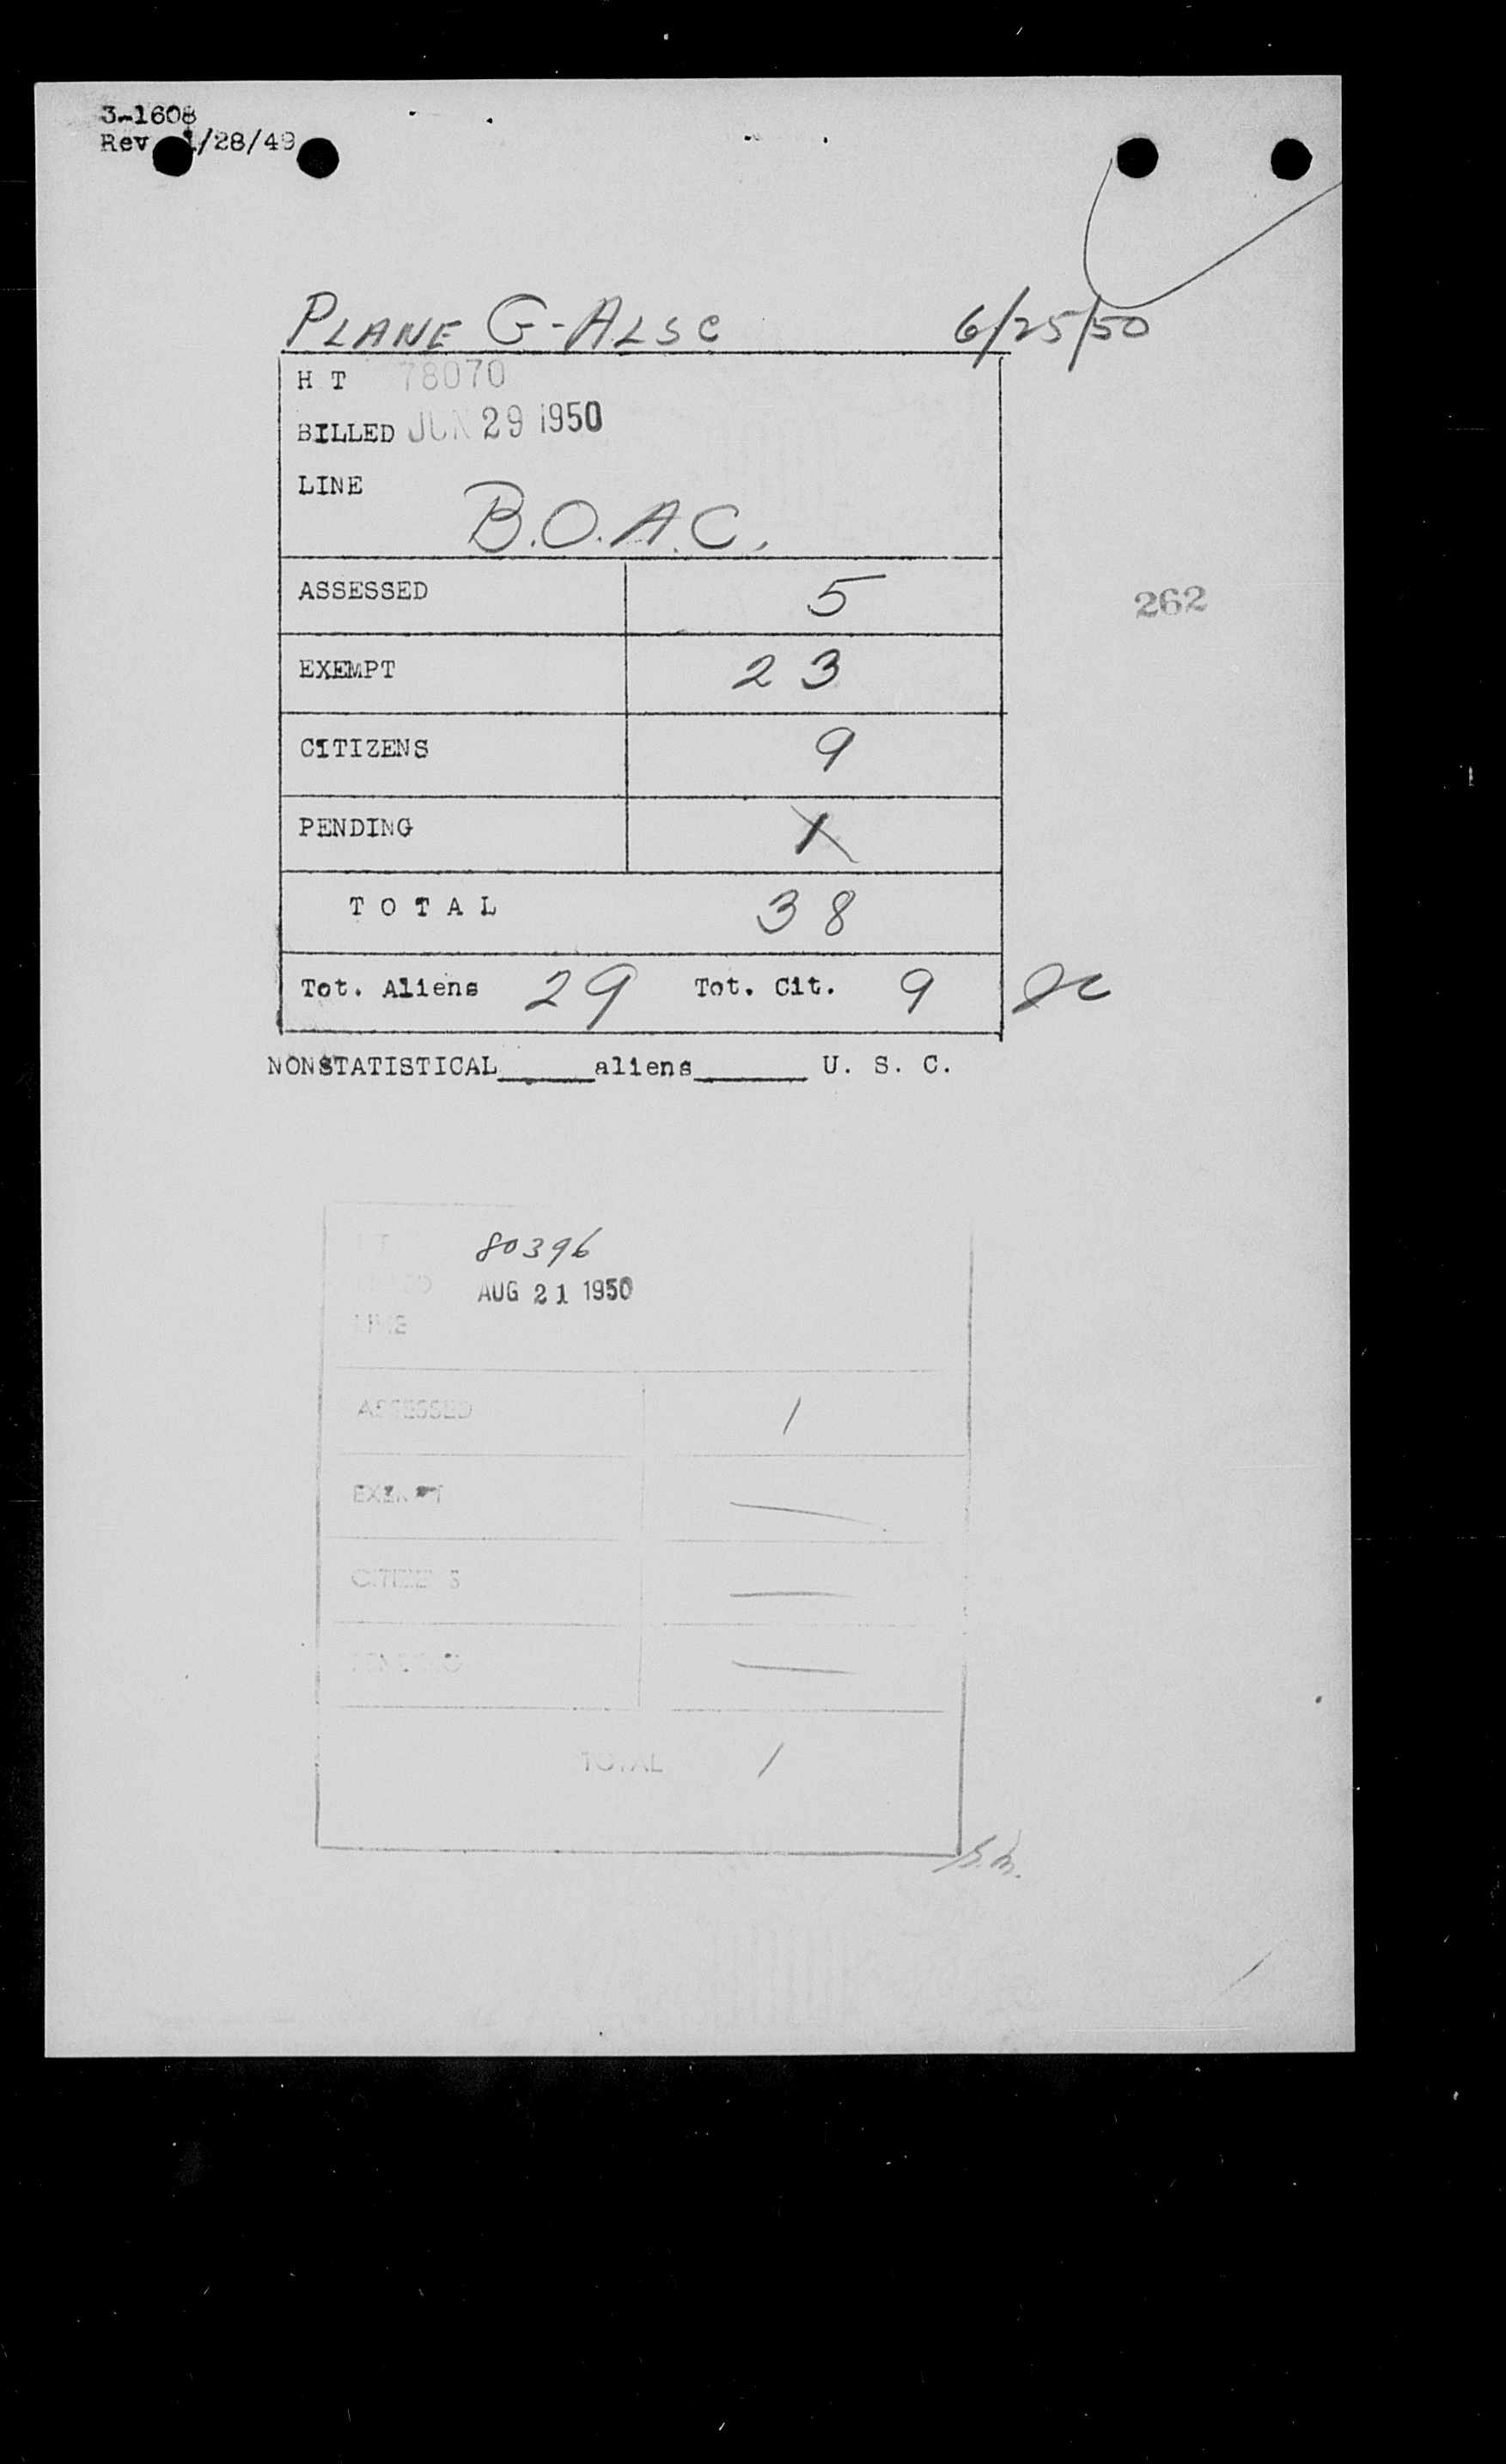 3-1608
Rev 1/28/49
PLANE G-ALSC 6/25/50
H T 78070
BILLED JUN 29 1950
LINE
B.O.A.C.
ASSESSED 5
262
EXEMPT 23
CITIZENS 9
PENDING 1
TOTAL 38
Tot. Aliens 29 Tot. Cit. 9
NONSTATISTICAL_____aliens______ U. S. C.
80396
AUG 21 1950
LINE
ASSESSED 1
EXEMPT —
CITIZENS —
PENDING —
TOTAL 1